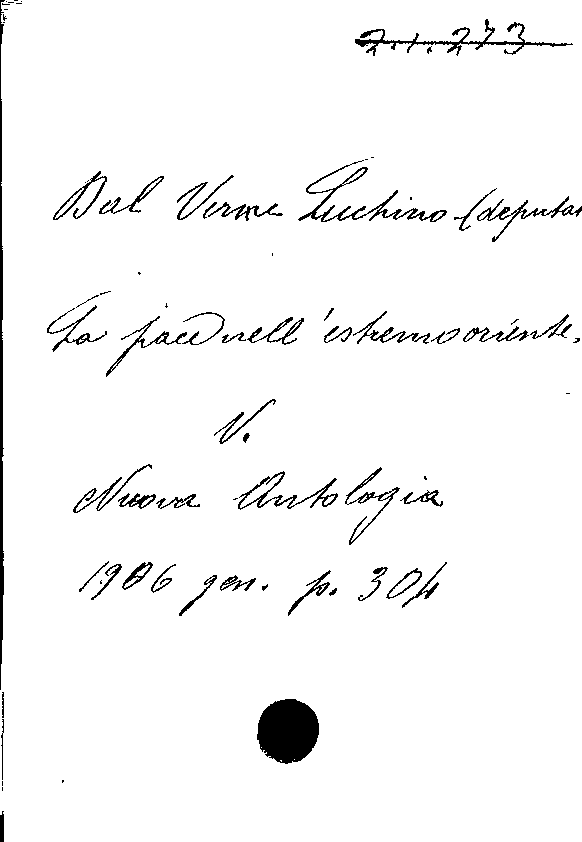 2.1.273
Dal Verme Luchino (deputat
La pace nell'estremo oriente.
V.
Nuova Antologia
1906 gen. p. 304